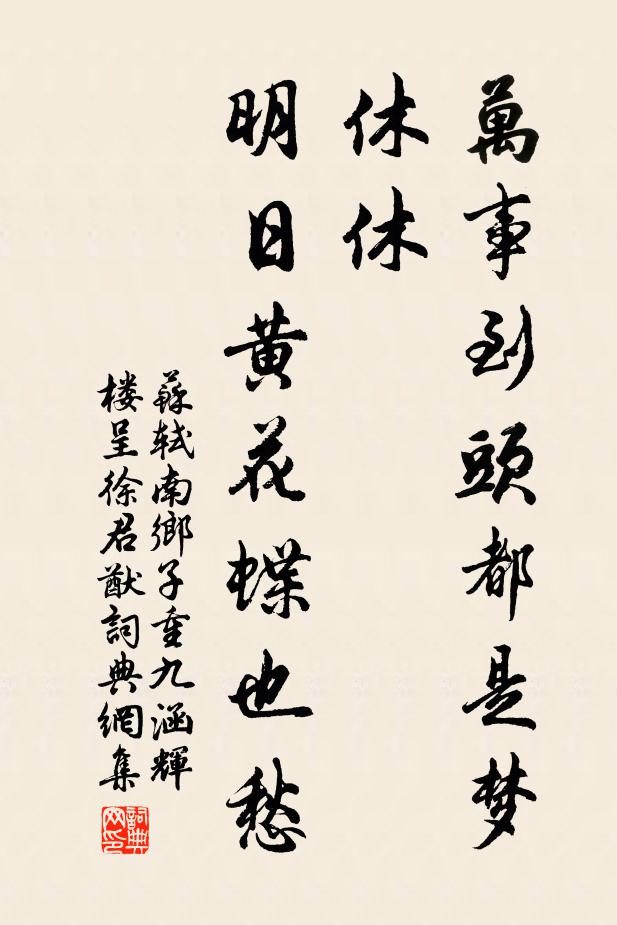 萬事到頭都是梦
休休
明日黄花蝶也愁
蘇軾南鄉子重九涵輝
楼呈徐君猷詞典網集
詞典网印